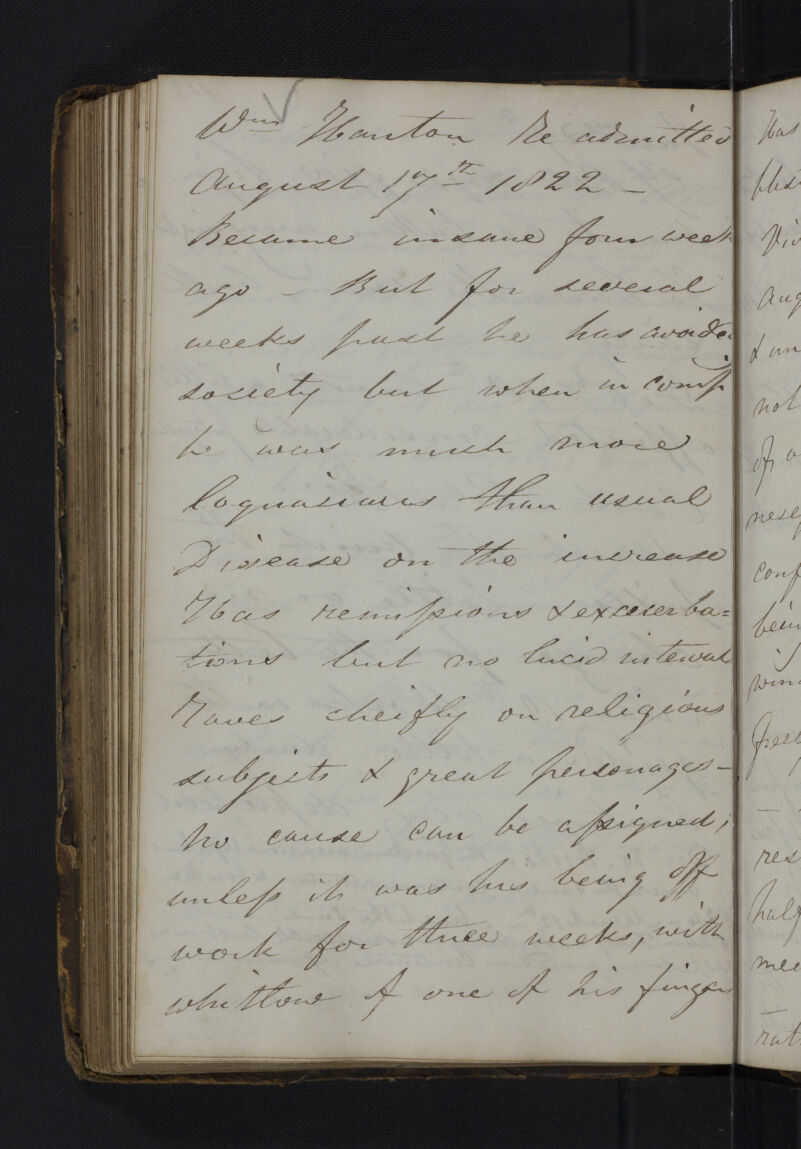 Wm Hanton Re admitted
August 17th 1822 –
Became insane four week
ago – But for several
weeks past he has avoided
society but when in comp
he was much more
loquacious than usual
Disease on the increase
Has remissions & exacerba=
tions but no lucid interval
Raves cheifly on religious
subjects & great personages –
no cause can be assigned,
unless it was his being off
work for three weeks, with
whitlow of one of his fingers
Has
not
of a
conf
bein
res
half